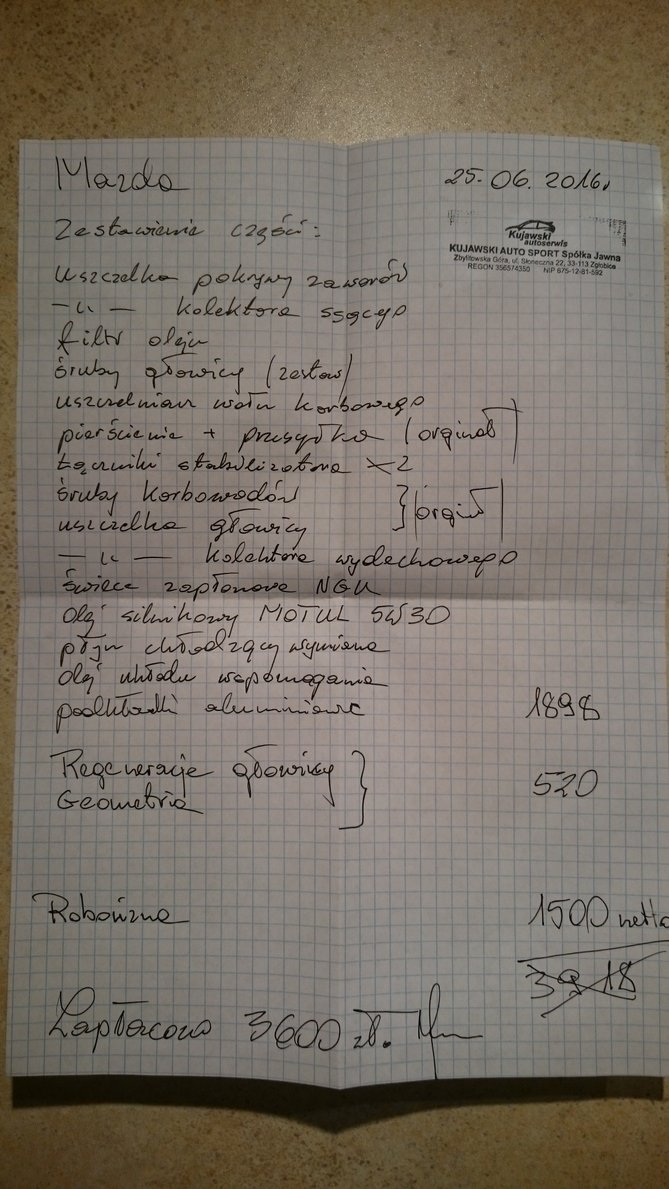 Mazda
25.06.2016r
Zestawienie części:
Kujawski
autoserwis
KUJAWSKI AUTO SPORT Spółka Jawna
Zbylitowska Góra, ul. Słoneczna 22, 33-113 Zgłobice
REGON 356574350 NIP 675-12-81-592
uszczelka pokrywy zaworów
— " — kolektora ssącego
filtr oleju
śruby głowicy (zestaw)
uszczelniacz wału korbowego
pierścienie + przesyłka (orginał)
Łączniki stabilizatora x2
śruby korbowodów
uszczelka głowicy } (orginał)
— " — kolektora wydechowego
świece zapłonowe NGK
olej silnikowy MOTUL 5W30
płyn chłodzący wymiana
olej układu wspomagania
podkładki aluminiowe 1898
Regeneracje głowicy
Geometria } 520
Robocizna 1500 netto
3918
Zapłacono 3600 zł.